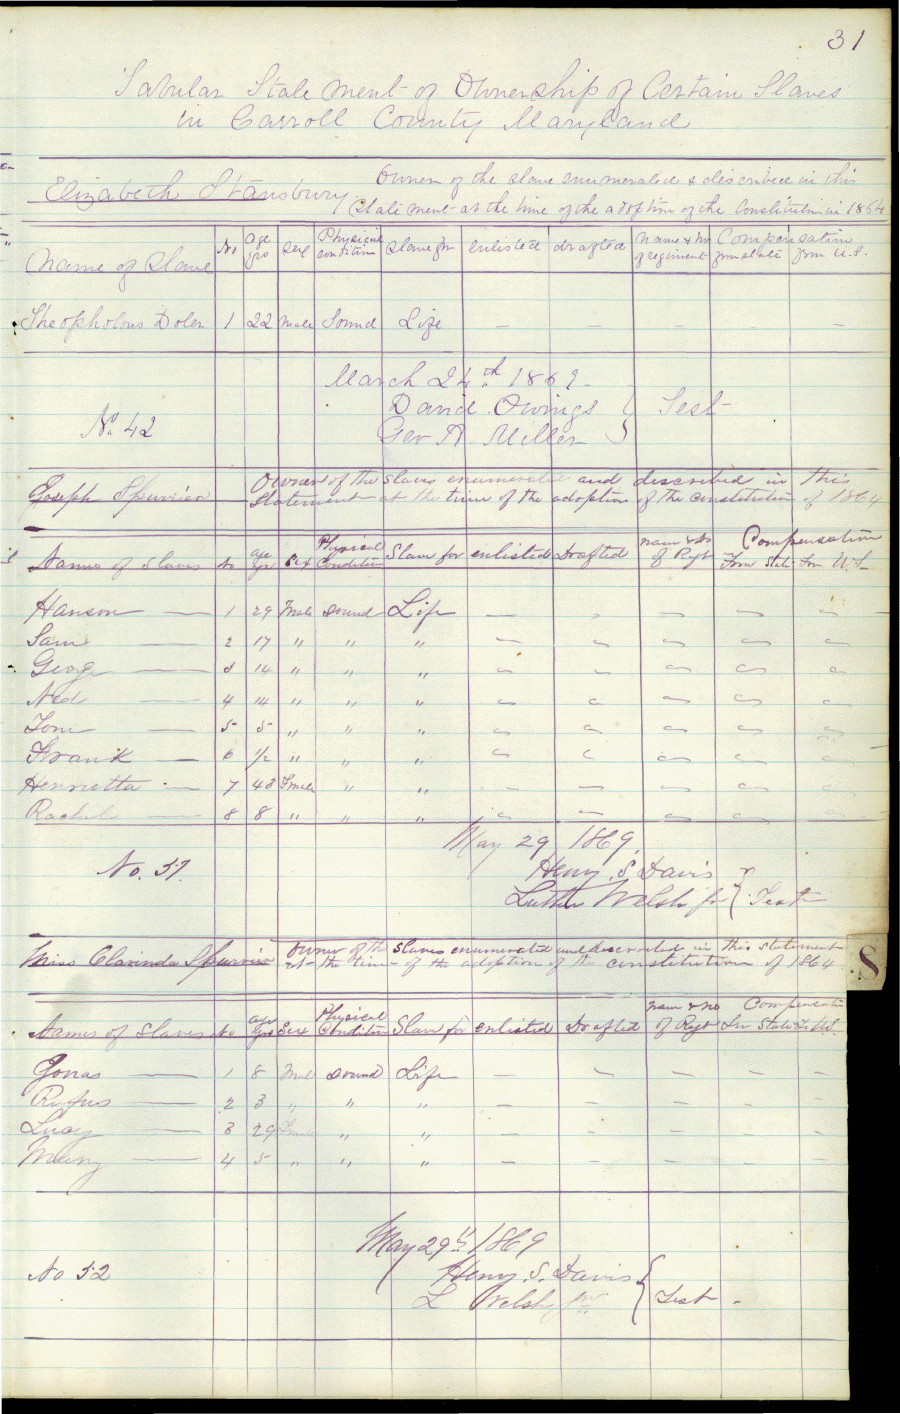 31
Tabular Statement of Ownership of Certain Slaves
in Carroll County Maryland
Elizabeth Stansbury Owner of the slave enumerated & described in this
Statement at the time of the adoption of the Constitution in 1864
Name of Slave No age yrs sex Physical condition slave for enlisted drafted name & No of regiment Compensation from state from U.S.
Theopholous Dolen 1 22 male Sound Life — — — — —
March 24th 1869
David Owings } Test
No. 42 Geo A Miller
Joseph Spurrier Owner of the slaves enumerated and described in this
Statement at the time of the adoption of the constitution of 1864
Names of Slaves No age yrs Sex Physical Condition Slave for enlisted Drafted name & No of Regt Compensation From State From U.S.
Hanson — 1 29 Male sound Life — — — — —
Sam — 2 17 " " " — — — — —
George — 3 14 " " " — — — — —
Ned — 4 14 " " " — — — — —
Tom — 5 5 " " " — — — — —
Frank — 6 1/2 " " " — — — — —
Henrietta — 7 43 Female " " — — — — —
Rachel — 8 8 " " " — — — — —
May 29 1869
No. 51. Henry S Davis }
Luther Welsh jr } Test
Miss Clarinda Spurrier owner of the slaves enumerated and described in this statement
at the time of the adoption of the constitution of 1864
S
Names of Slaves No age yrs Sex Physical Condition Slave for enlisted Drafted name & no of Regt Compensation State U.S.
Jonas — 1 8 Male sound Life — — — — —
Rufus — 2 3 " " " — — — — —
Lucy — 3 29 Female " " — — — — —
Mary — 4 5 " " " — — — — —
May 29th 1869
No 52 Henry S. Davis {
L Welsh jr { Test -